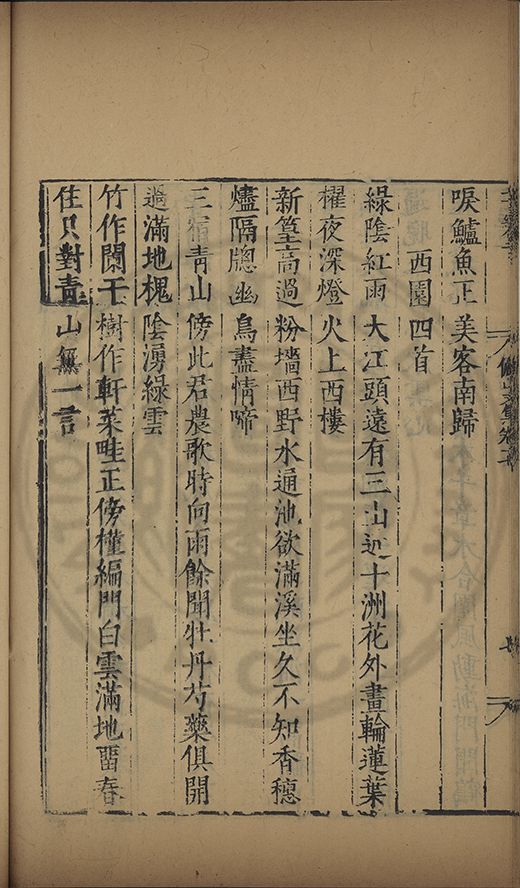 唳鱸魚正美客南歸
西園四首
綠陰紅雨大江頭遠有三山近十洲花外畫輪蓮葉
櫂夜深燈火上西樓
新篁高過粉墻西野水通池欲滿溪坐久不知香穗
燼隔牕幽鳥盡情啼
三宿青山傍此君農歌時向雨餘聞牡丹芍藥俱開
過滿地槐陰湧綠雲
竹作闌干樹作軒菜畦正傍槿編門白雲滿地畱春
住只對青山無一言